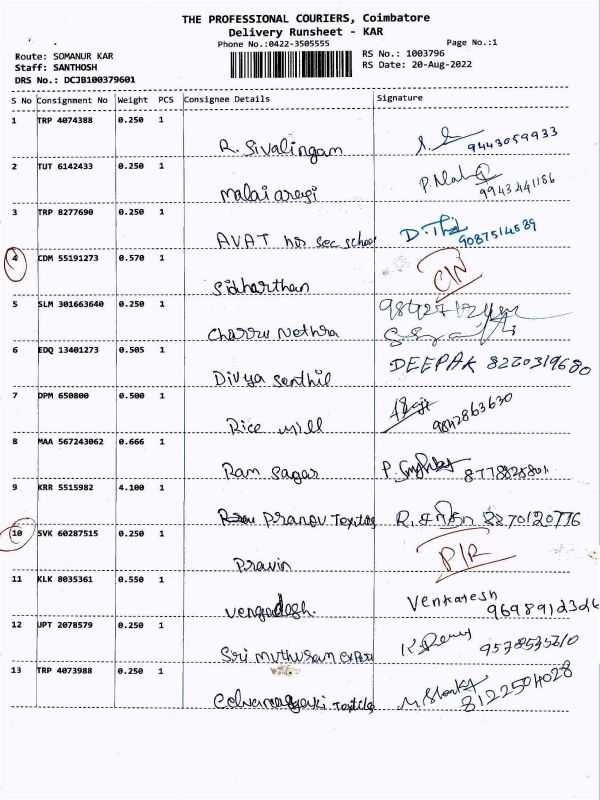 THE PROFESSIONAL COURIERS, Coimbatore
Delivery Runsheet - KAR
Phone No.:0422-3505555 Page No.:1
Route: SOMANUR KAR RS No.: 1003796
Staff: SANTHOSH RS Date: 20-Aug-2022
DRS No.: DCJB100379601
S No Consignment No Weight PCS Consignee Details Signature
1 TRP 4074388 0.250 1
R. Sivalingam 9443059933
2 TUT 6142433 0.250 1
malai arasi 9943441186
3 TRP 8277690 0.250 1
AVAT hr sec school 9087514589
4 CDM 55191273 0.570 1
Sidharthan C/N
5 SLM 301663640 0.250 1
Charru Nethra
6 EDQ 13401273 0.505 1
Divya Senthil DEEPAK 8220319680
7 DPM 650800 0.500 1
Rice mill 9842863630
8 MAA 567243062 0.666 1
Ram Sagar
9 KRR 5515982 4.100 1
Pranov Textiles 8870120776
10 SVK 60287515 0.250 1
Pravin P/R
11 KLK 8035361 0.550 1
Vengadesh. Venkatesh
12 UPT 2078579 0.250 1
Sri muthusan
13 TRP 4073988 0.250 1
8122504028